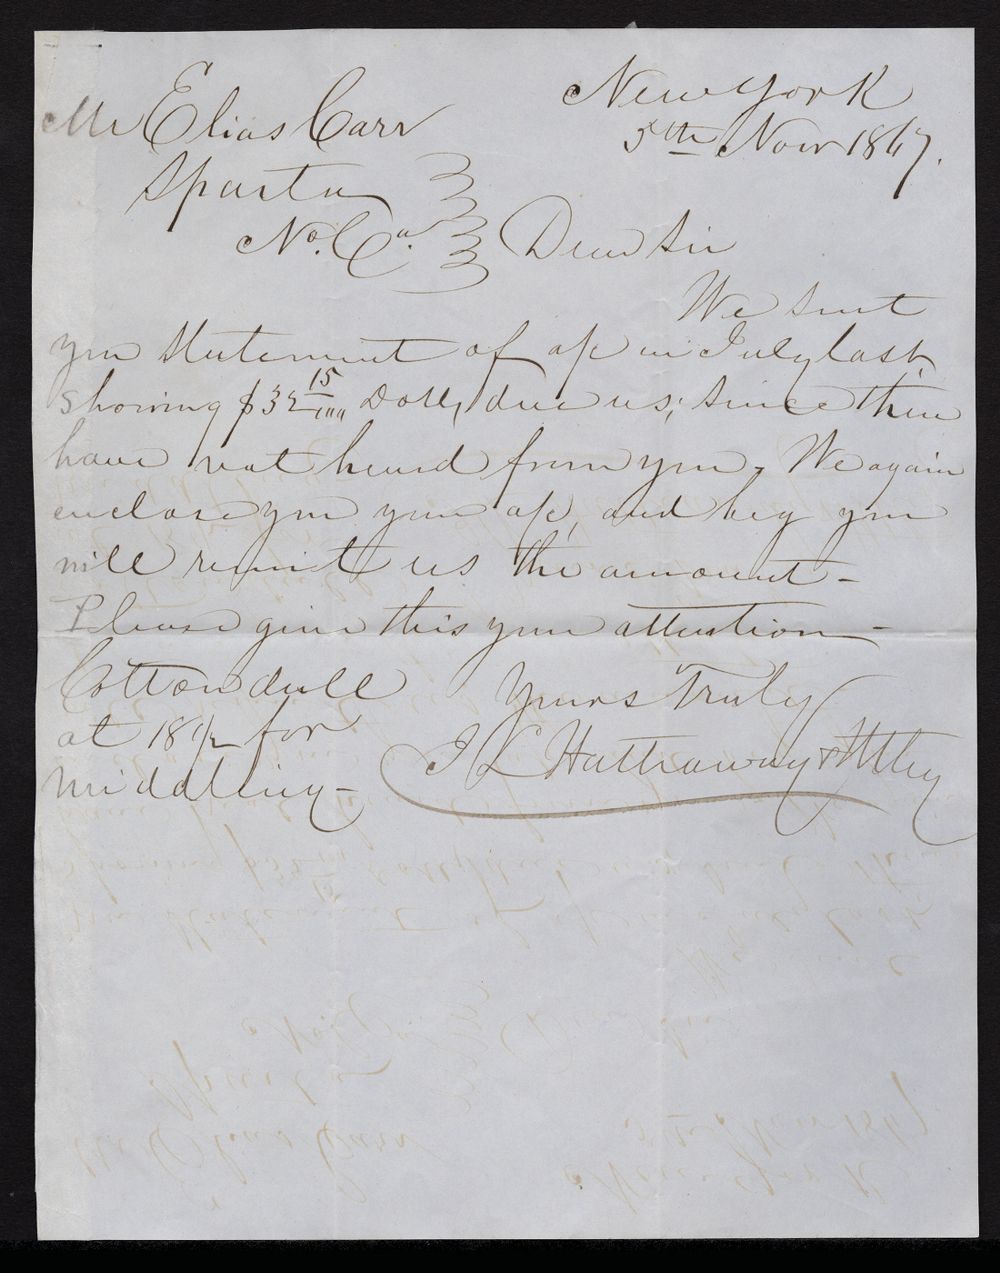 New York
5th Novr 1867.
Mr Elias Carr
Sparta
No. Ca.
Dear Sir
We sent
you statement of a/c in July last
showing $32 15/100 Dolls, due us, since then
have not heard from you. We again
enclose you your a/c, and beg you
will remit us the amount -
Please give this your attention -
Yours Truly
J L Hathaway & Utley
Cotton dull
at 18 1/2 for
middling -